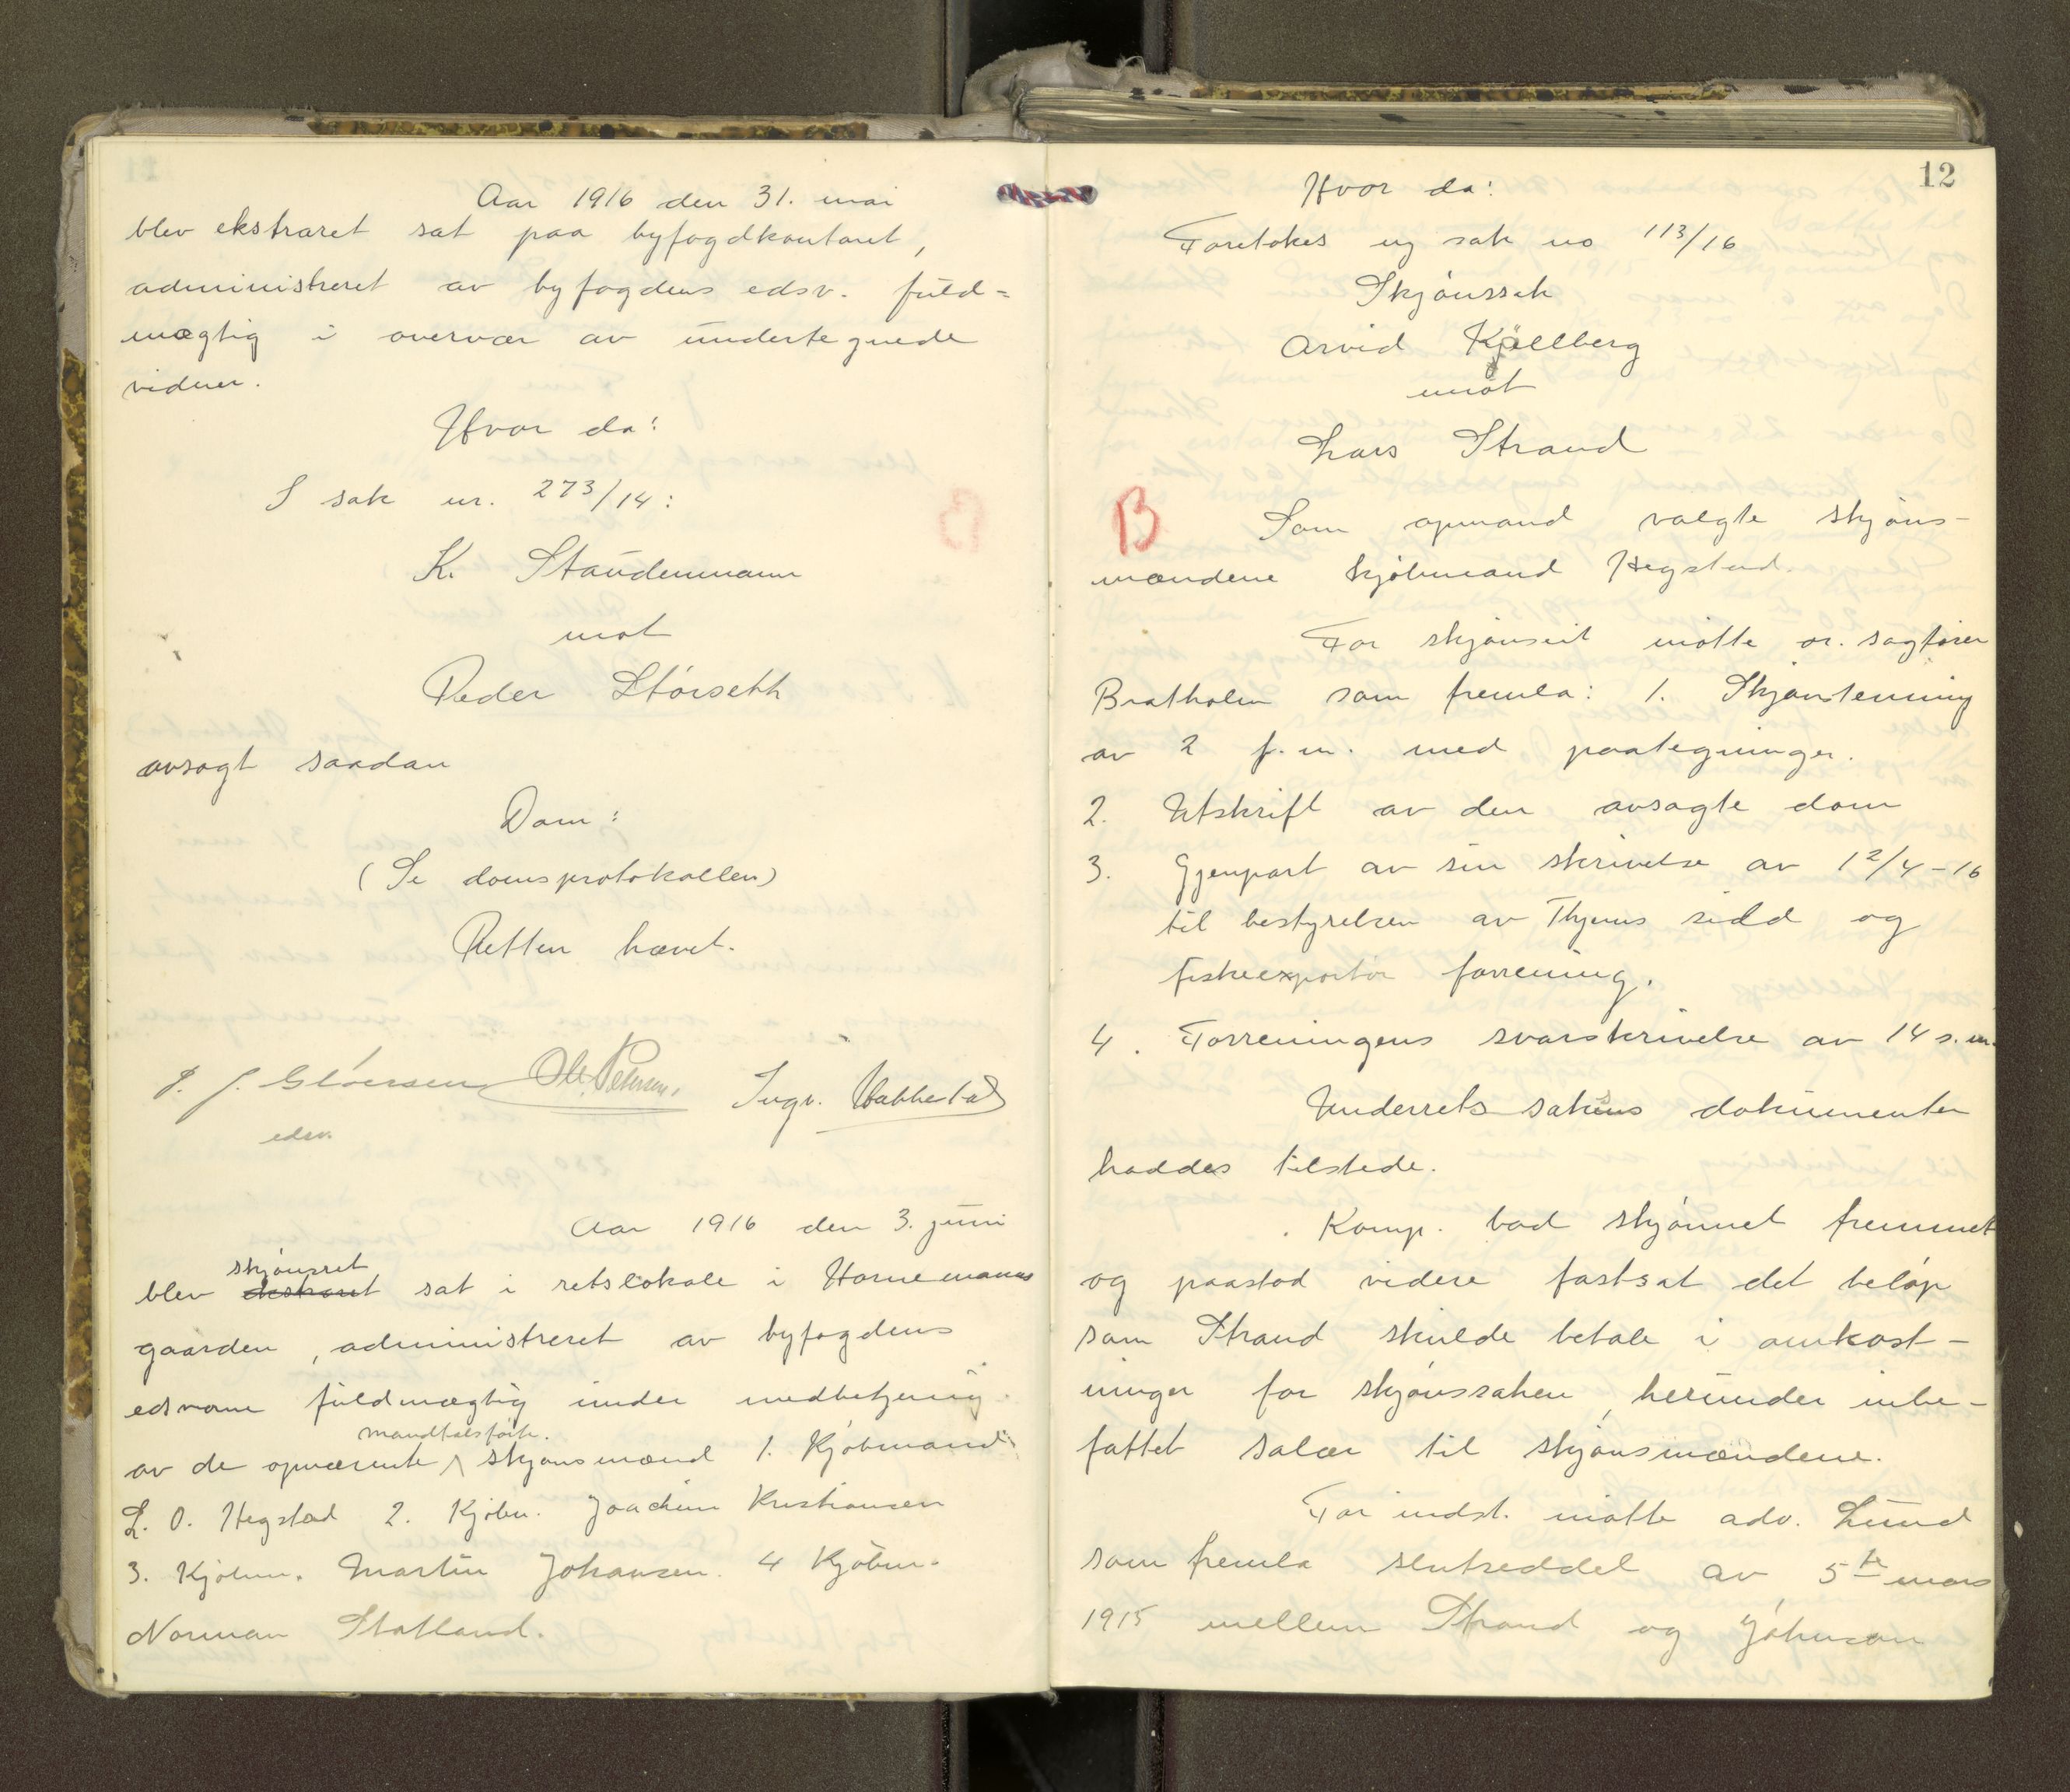 Aar 1916 den 31. mai
blev ekstraret sat paa byfogdkontoret,
administreret av byfogdens edsv. fuld=
mægtig i overvær av undertegnede
vidner.
Hvor da:
I sak nr. 273/14:
K. Staudenmann
mot
Peder Størseth
avsagt saadan
Dom:
(Se domsprotokollen)
Retten hævet.
J. Gløersen Ole Petersen. Ingv.
edsv.
Aar 1916 den 3. juni
skjønsret
blev ekstraret sat i retslokale i Hornemanns
gaarden, administreret av byfogdens
edsvorne fuldmægtig under medbetjening
mandtalsførte.
av de opnævnte skjønsmænd 1. Kjøbmand
L. O. Hegstad 2. Kjøbm. Joachim Kristiansen
3. Kjøbm. Martin Johansen. 4 Kjøbm.
Norman Statland.
12
Hvor da:
Foretokes ny sak no 113/16
Skjønssak
Arvid Kjellberg
mot
Lars Strand
B
Som opmand valgte skjøns-
mændene kjøbmand Hegstad.
For skjønsrekv. møtte or. sagfører
Bratholm som fremla: 1. Skjønstevning
av 2 f.m. med paategninger.
2. Utskrift av den avsagte dom
3. Gjenpart av sin skrivelse av 12/4-16
til bestyrelsen av Thjems sild og
fiskeexportør forrening.
4. Forreningens svarskrivelse av 14 s.m.
Underrets sakens dokumenter
haddes tilstede.
Komp. bad skjønnet fremmet
og paastod videre fastsat det beløp
som Strand skulde betale i omkost-
ninger for skjønssaken, herunder inbe-
fattet salær til skjønsmændene.
For indst. møtte adv. Lund
som fremla slutseddel av 5te mars
1915 mellem Strand og Johnson